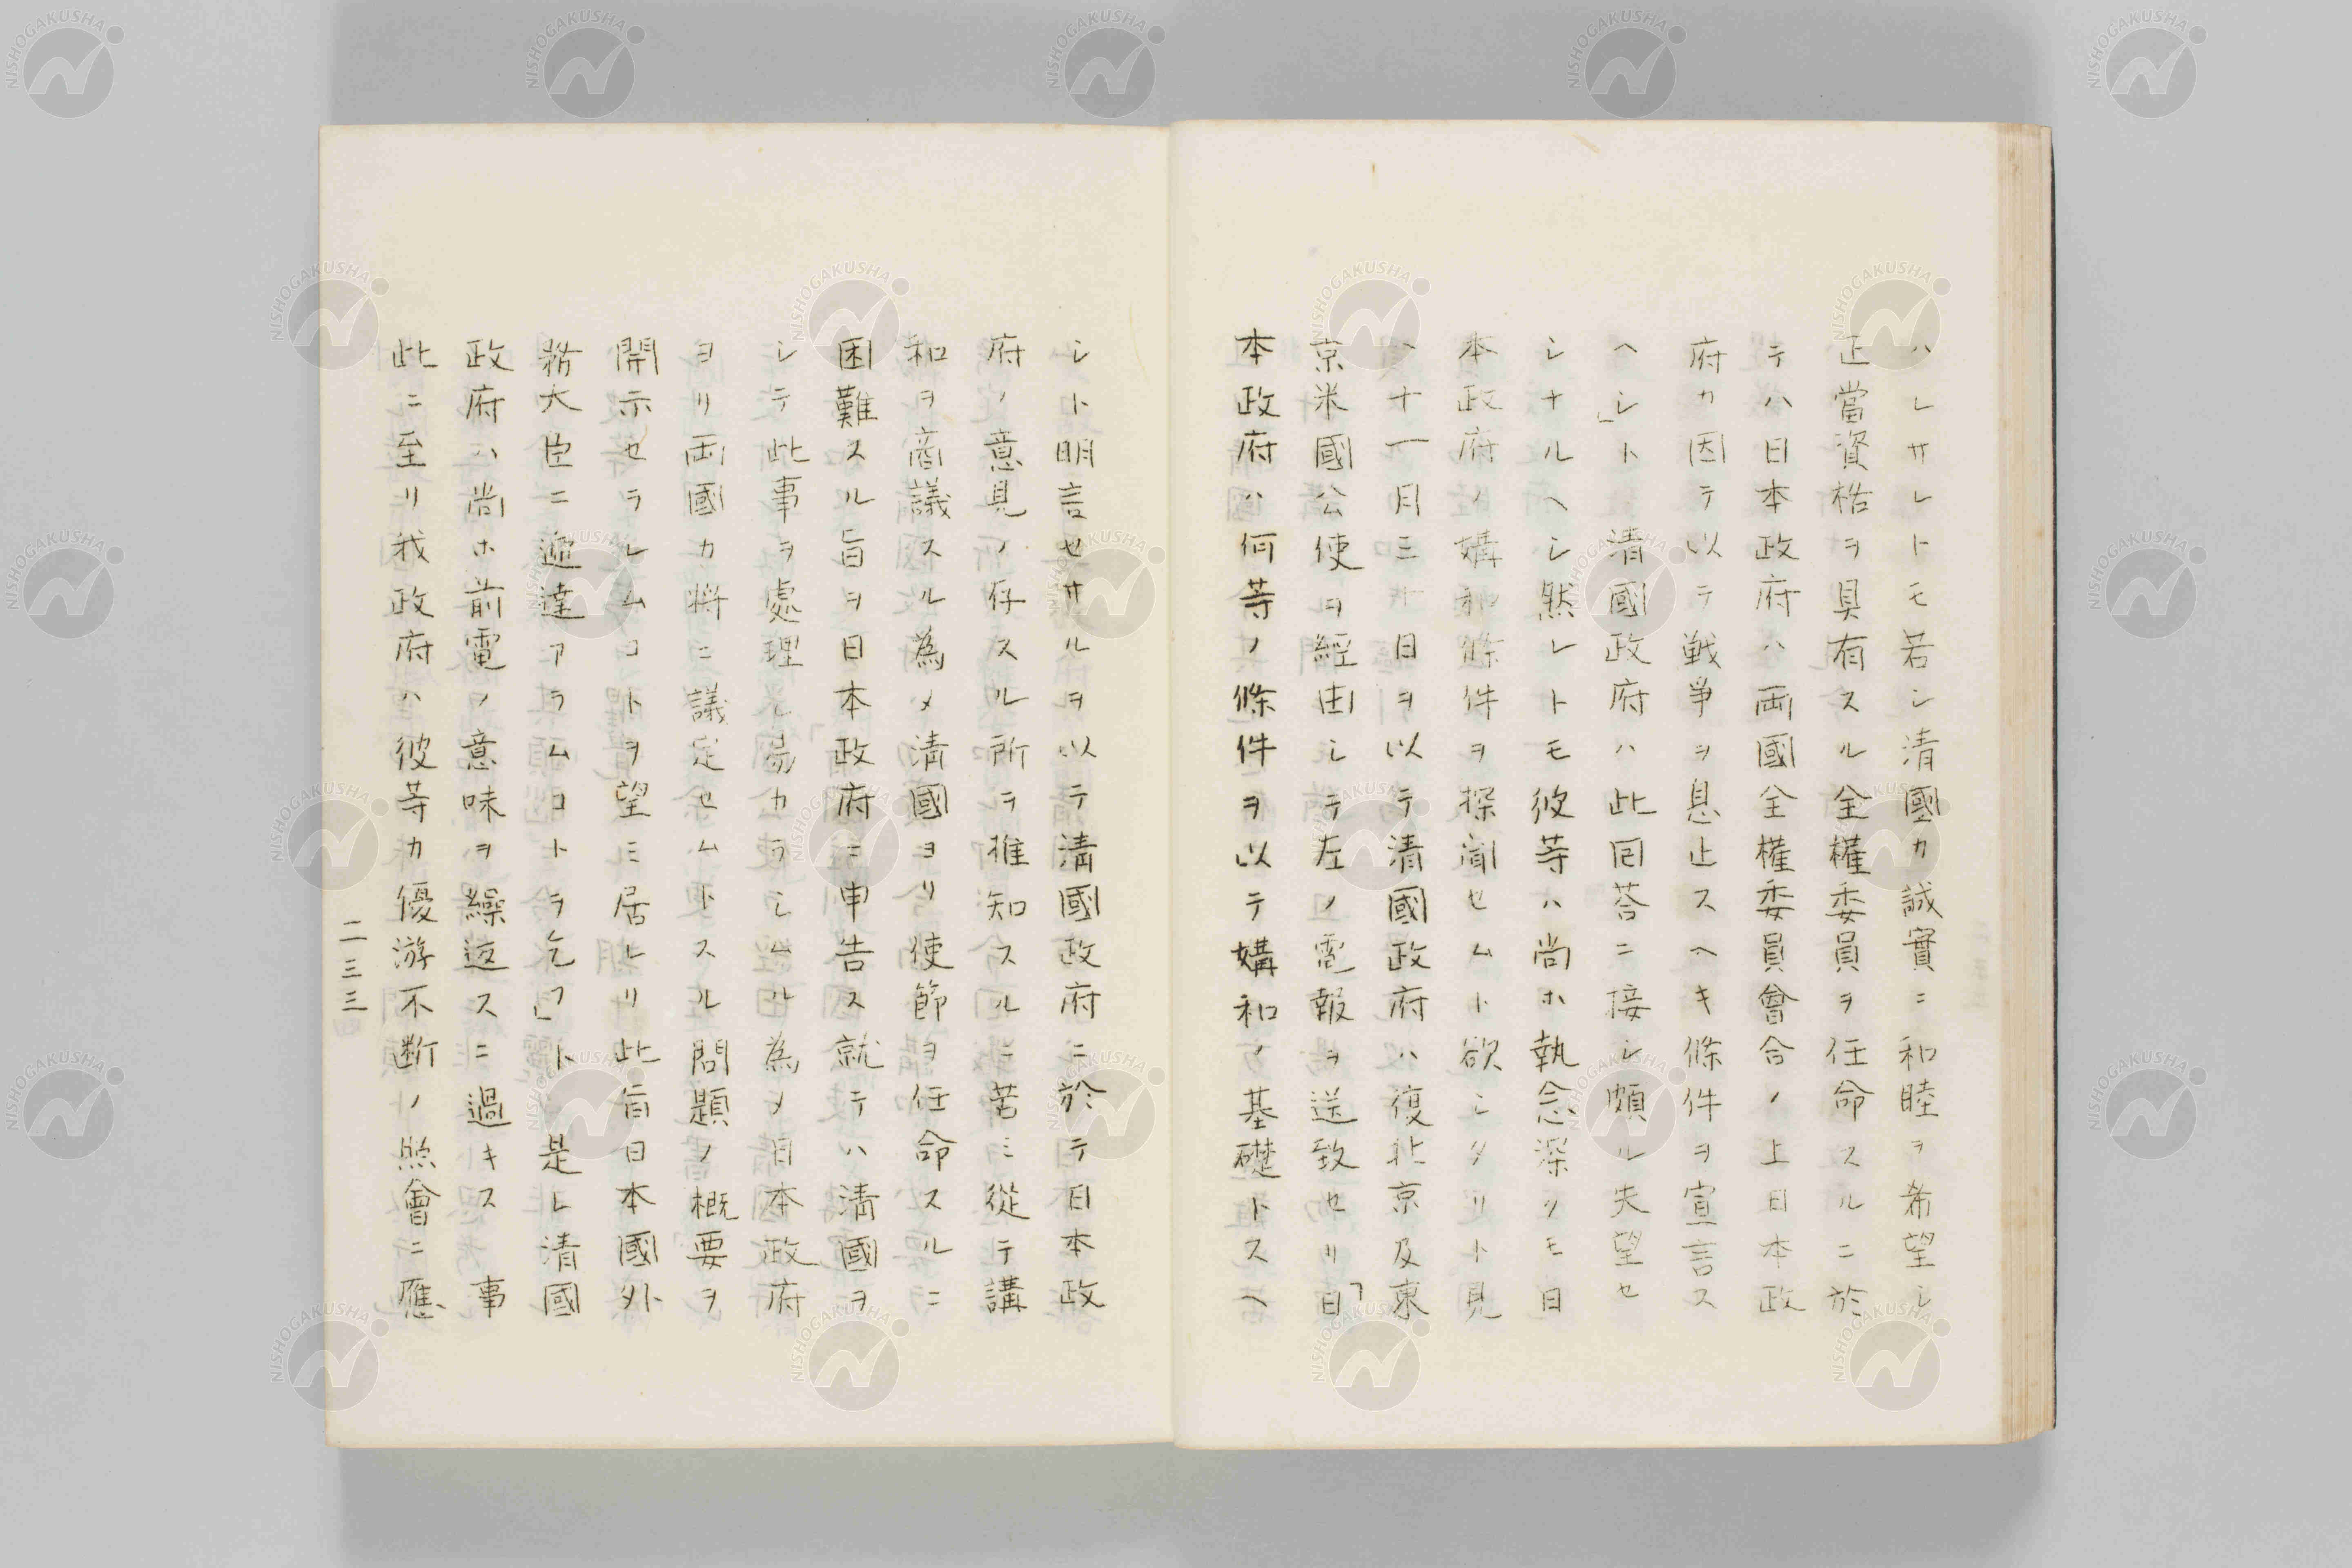 ハレサレトモ若シ清國カ誠實ニ和睦ヲ希望シ
正當資格ヲ具有スル全權委員ヲ任命スルニ於
テハ日本政府ハ両國全權委員會合ノ上日本政
府カ因テ以テ戦爭ヲ息止スヘキ條件ヲ宣言ス
ヘシ」ト清國政府ハ此回荅ニ接シ頗ル失望セ
シナルヘシ然レトモ彼等ハ尚ホ執念深クモ日
本政府ノ媾和條件ヲ探聞セムト欲シタリト見
ヘ十一月三十日ヲ以テ清國政府ハ復北京及東
京米國公使ヲ經由シテ左ノ電報ヲ送致セリ「日
本政府ハ何等ノ條件ヲ以テ媾和ノ基礎トスヘ
シト明言セサルヲ以テ清國政府ニ於テ日本政
府ノ意見ノ存スル所ヲ推知スルニ苦ミ從テ講
和ヲ商議スル為メ清國ヨリ使節ヲ任命スルニ
困難スル旨ヲ日本政府ニ申告ス就テハ清國ヲ
シテ此事ヲ處理シ易カラシムル為メ日本政府
ヨリ両國カ將ニ議定セムトスル問題ノ概要ヲ
開示セラレムコトヲ望ミ居レリ此旨日本國外
務大臣ニ逓達アラムコトヲ乞フ」ト是レ清國
政府ハ尚ホ前電ノ意味ヲ繰返スニ過キス事
此ニ至リ我政府ハ彼等カ優游不断ノ照會ニ應
二三三
NISHOGAKUSHA